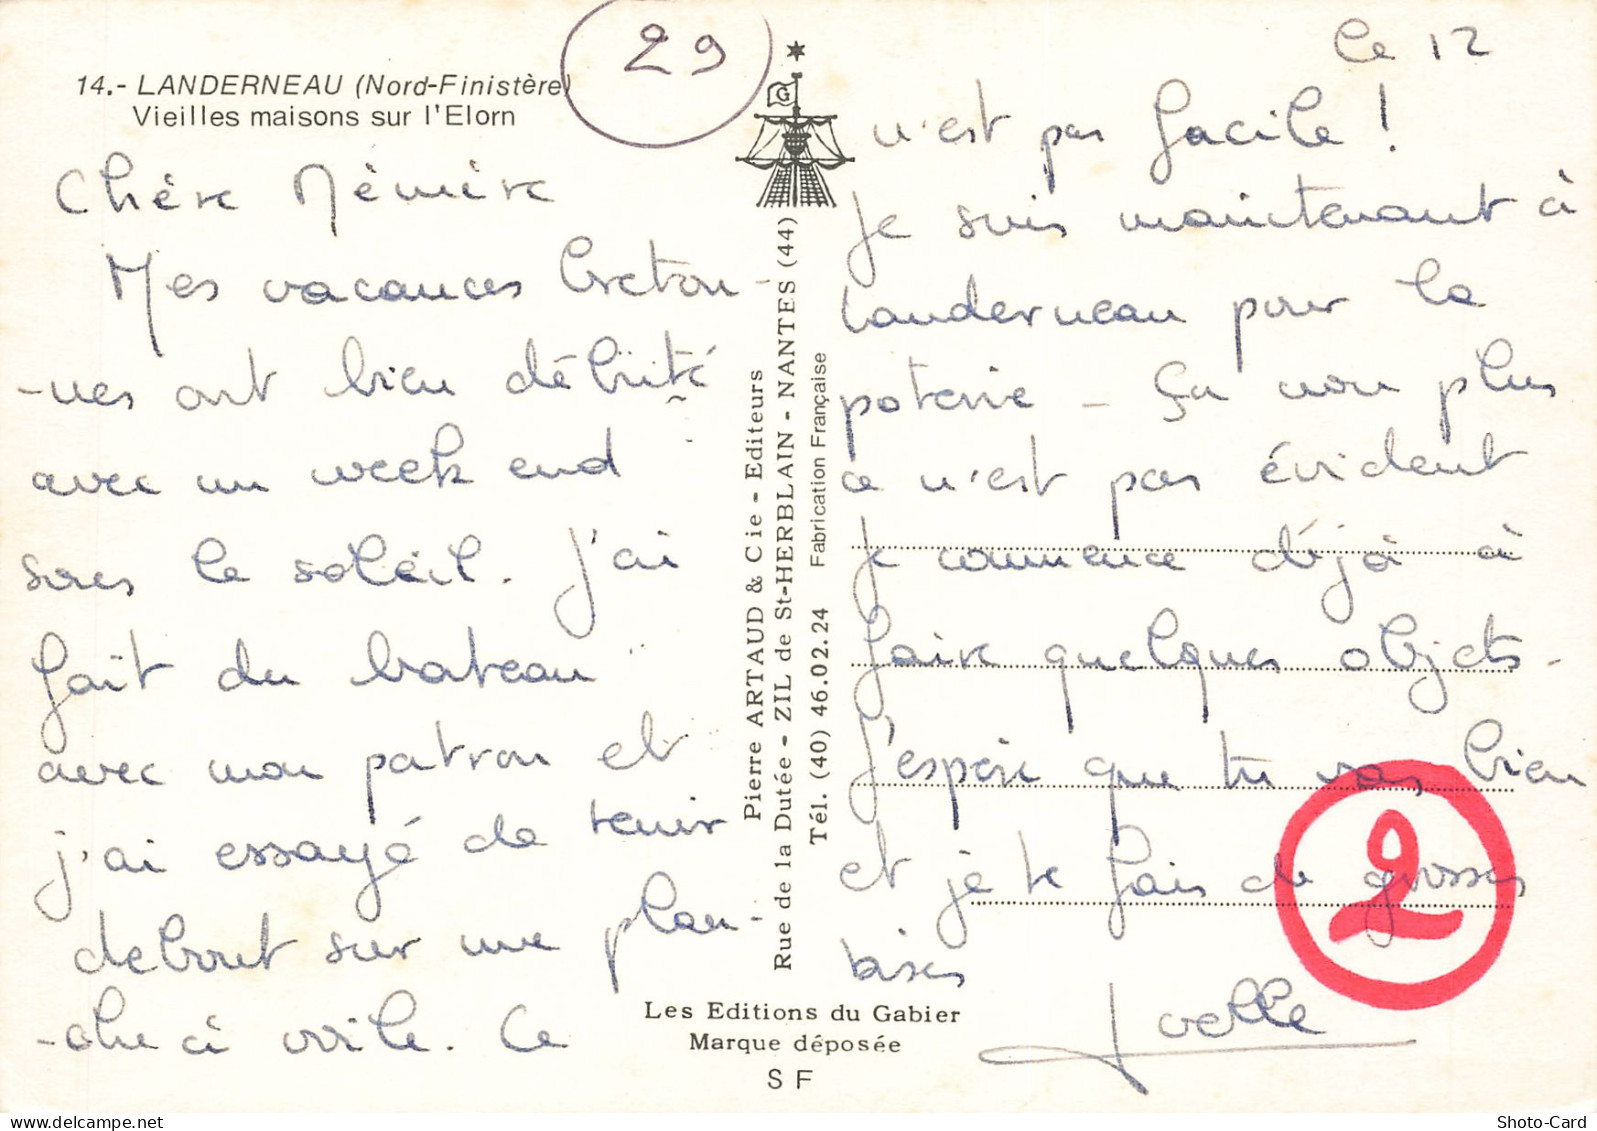 14.- LANDERNEAU (Nord-Finistère)
Vieilles maisons sur l'Elorn
29
Chère Mémère
Mes vacances breton-
-nes ont bien débuté
avec un week end
sous le soleil. J'ai
fait du bateau
avec mon patron et
j'ai essayé de tenir
debout sur une plan-
-che à voile. Ce
Pierre ARTAUD & Cie - Editeurs
Rue de la Dutée - ZIL de St-HERBLAIN - NANTES (44)
Tél. (40) 46.02.24 Fabrication Française
Les Editions du Gabier
Marque déposée
SF
G
Le 12
n'est pas facile !
Je suis maintenant à
Landerneau pour la
poterie - Ça non plus
ce n'est pas évident
Je commence déjà à
faire quelques objets.
J'espère que tu vas bien
et je te fais de grosses
bises
Joelle
2
Shoto-Card